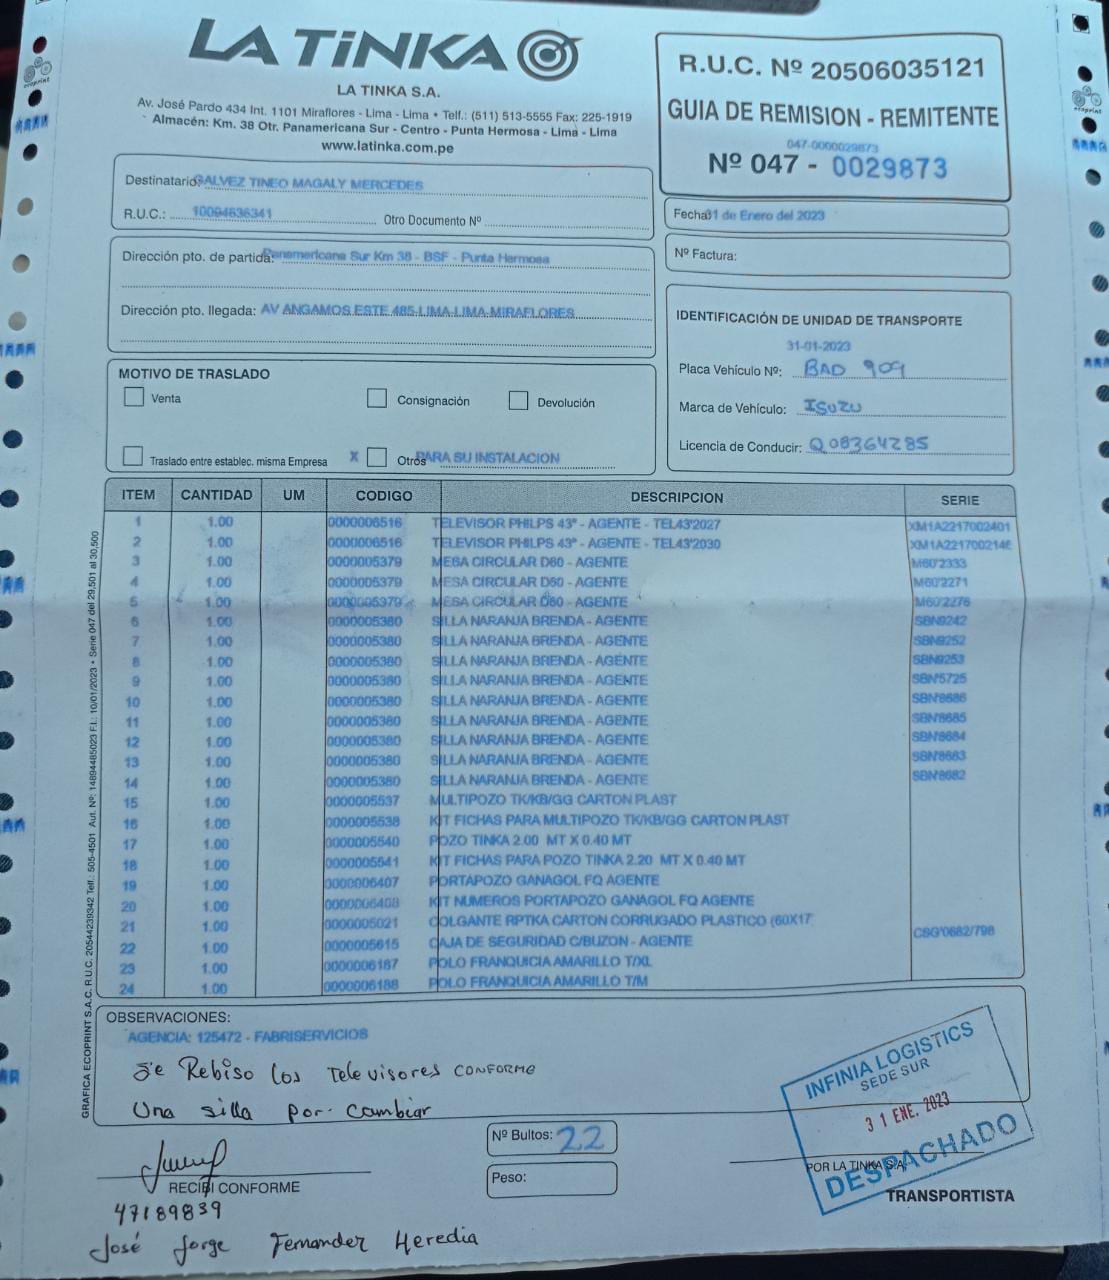 LA TiNKA
LA TINKA S.A.
Av. José Pardo 434 Int. 1101 Miraflores - Lima - Lima • Telf.: (511) 513-5555 Fax: 225-1919
Almacén: Km. 38 Otr. Panamericana Sur - Centro - Punta Hermosa - Lima - Lima
www.latinka.com.pe
R.U.C. Nº 20506035121
GUIA DE REMISION - REMITENTE
047-0000029873
Nº 047 - 0029873
Destinatario: GALVEZ TINEO MAGALY MERCEDES
R.U.C.: 10094636341 Otro Documento Nº
Fecha: 31 de Enero del 2023
Nº Factura:
Dirección pto. de partida: Panamericana Sur Km 38 - BSF - Punta Hermosa
Dirección pto. llegada: AV ANGAMOS ESTE 485-LIMA-LIMA-MIRAFLORES
IDENTIFICACIÓN DE UNIDAD DE TRANSPORTE
31-01-2023
Placa Vehículo Nº: BAD 909
Marca de Vehículo: ISUZU
Licencia de Conducir: Q08364285
MOTIVO DE TRASLADO
Venta Consignación Devolución
Traslado entre establec. misma Empresa X Otros PARA SU INSTALACION
ITEM CANTIDAD UM CODIGO DESCRIPCION SERIE
1 1.00 0000006516 TELEVISOR PHILPS 43" - AGENTE - TEL43'2027 XM1A2217002401
2 1.00 0000006516 TELEVISOR PHILPS 43" - AGENTE - TEL43'2030 XM1A2217002146
3 1.00 0000005379 MESA CIRCULAR D60 - AGENTE M60'2333
4 1.00 0000005379 MESA CIRCULAR D60 - AGENTE M60'2271
5 1.00 0000005379 MESA CIRCULAR D60 - AGENTE M60'2276
6 1.00 0000005380 SILLA NARANJA BRENDA - AGENTE SBN9242
7 1.00 0000005380 SILLA NARANJA BRENDA - AGENTE SBN9252
8 1.00 0000005380 SILLA NARANJA BRENDA - AGENTE SBN9253
9 1.00 0000005380 SILLA NARANJA BRENDA - AGENTE SBN'5725
10 1.00 0000005380 SILLA NARANJA BRENDA - AGENTE SBN'8686
11 1.00 0000005380 SILLA NARANJA BRENDA - AGENTE SBN'8685
12 1.00 0000005380 SILLA NARANJA BRENDA - AGENTE SBN'8684
13 1.00 0000005380 SILLA NARANJA BRENDA - AGENTE SBN'8683
14 1.00 0000005380 SILLA NARANJA BRENDA - AGENTE SBN'8682
15 1.00 0000005537 MULTIPOZO TK/KB/GG CARTON PLAST
16 1.00 0000005538 KIT FICHAS PARA MULTIPOZO TK/KB/GG CARTON PLAST
17 1.00 0000005540 POZO TINKA 2.00 MT X 0.40 MT
18 1.00 0000005541 KIT FICHAS PARA POZO TINKA 2.20 MT X 0.40 MT
19 1.00 0000006407 PORTAPOZO GANAGOL FQ AGENTE
20 1.00 0000006408 KIT NUMEROS PORTAPOZO GANAGOL FQ AGENTE
21 1.00 0000005021 COLGANTE RPTKA CARTON CORRUGADO PLASTICO (60X17
22 1.00 0000005615 CAJA DE SEGURIDAD C/BUZON - AGENTE CSG'0682/798
23 1.00 0000006187 POLO FRANQUICIA AMARILLO T/XL
24 1.00 0000006188 POLO FRANQUICIA AMARILLO T/M
GRAFICA ECOPRINT S.A.C. R.U.C. 20544239342 Telf.: 505-4501 Aut. Nº: 14894485023 F.I.: 10/01/2023 • Serie 047 del 29,501 al 30,500
OBSERVACIONES:
AGENCIA: 125472 - FABRISERVICIOS
Se Rebiso los Televisores CONFORME
Una silla por cambiar
INFINIA LOGISTICS
SEDE SUR
31 ENE. 2023
DESPACHADO
Nº Bultos: 22
Peso:
RECIBI CONFORME
POR LA TINKA S.A.
TRANSPORTISTA
47189839
José Jorge Fernander Heredia